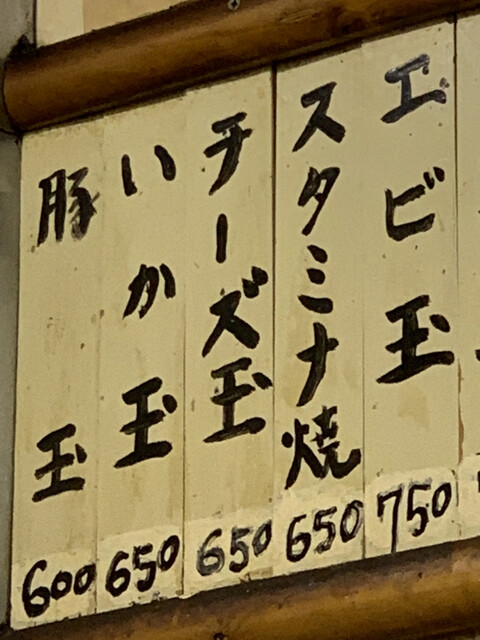 エビ玉 750
スタミナ焼 650
チーズ玉 650
いか玉 650
豚玉 600